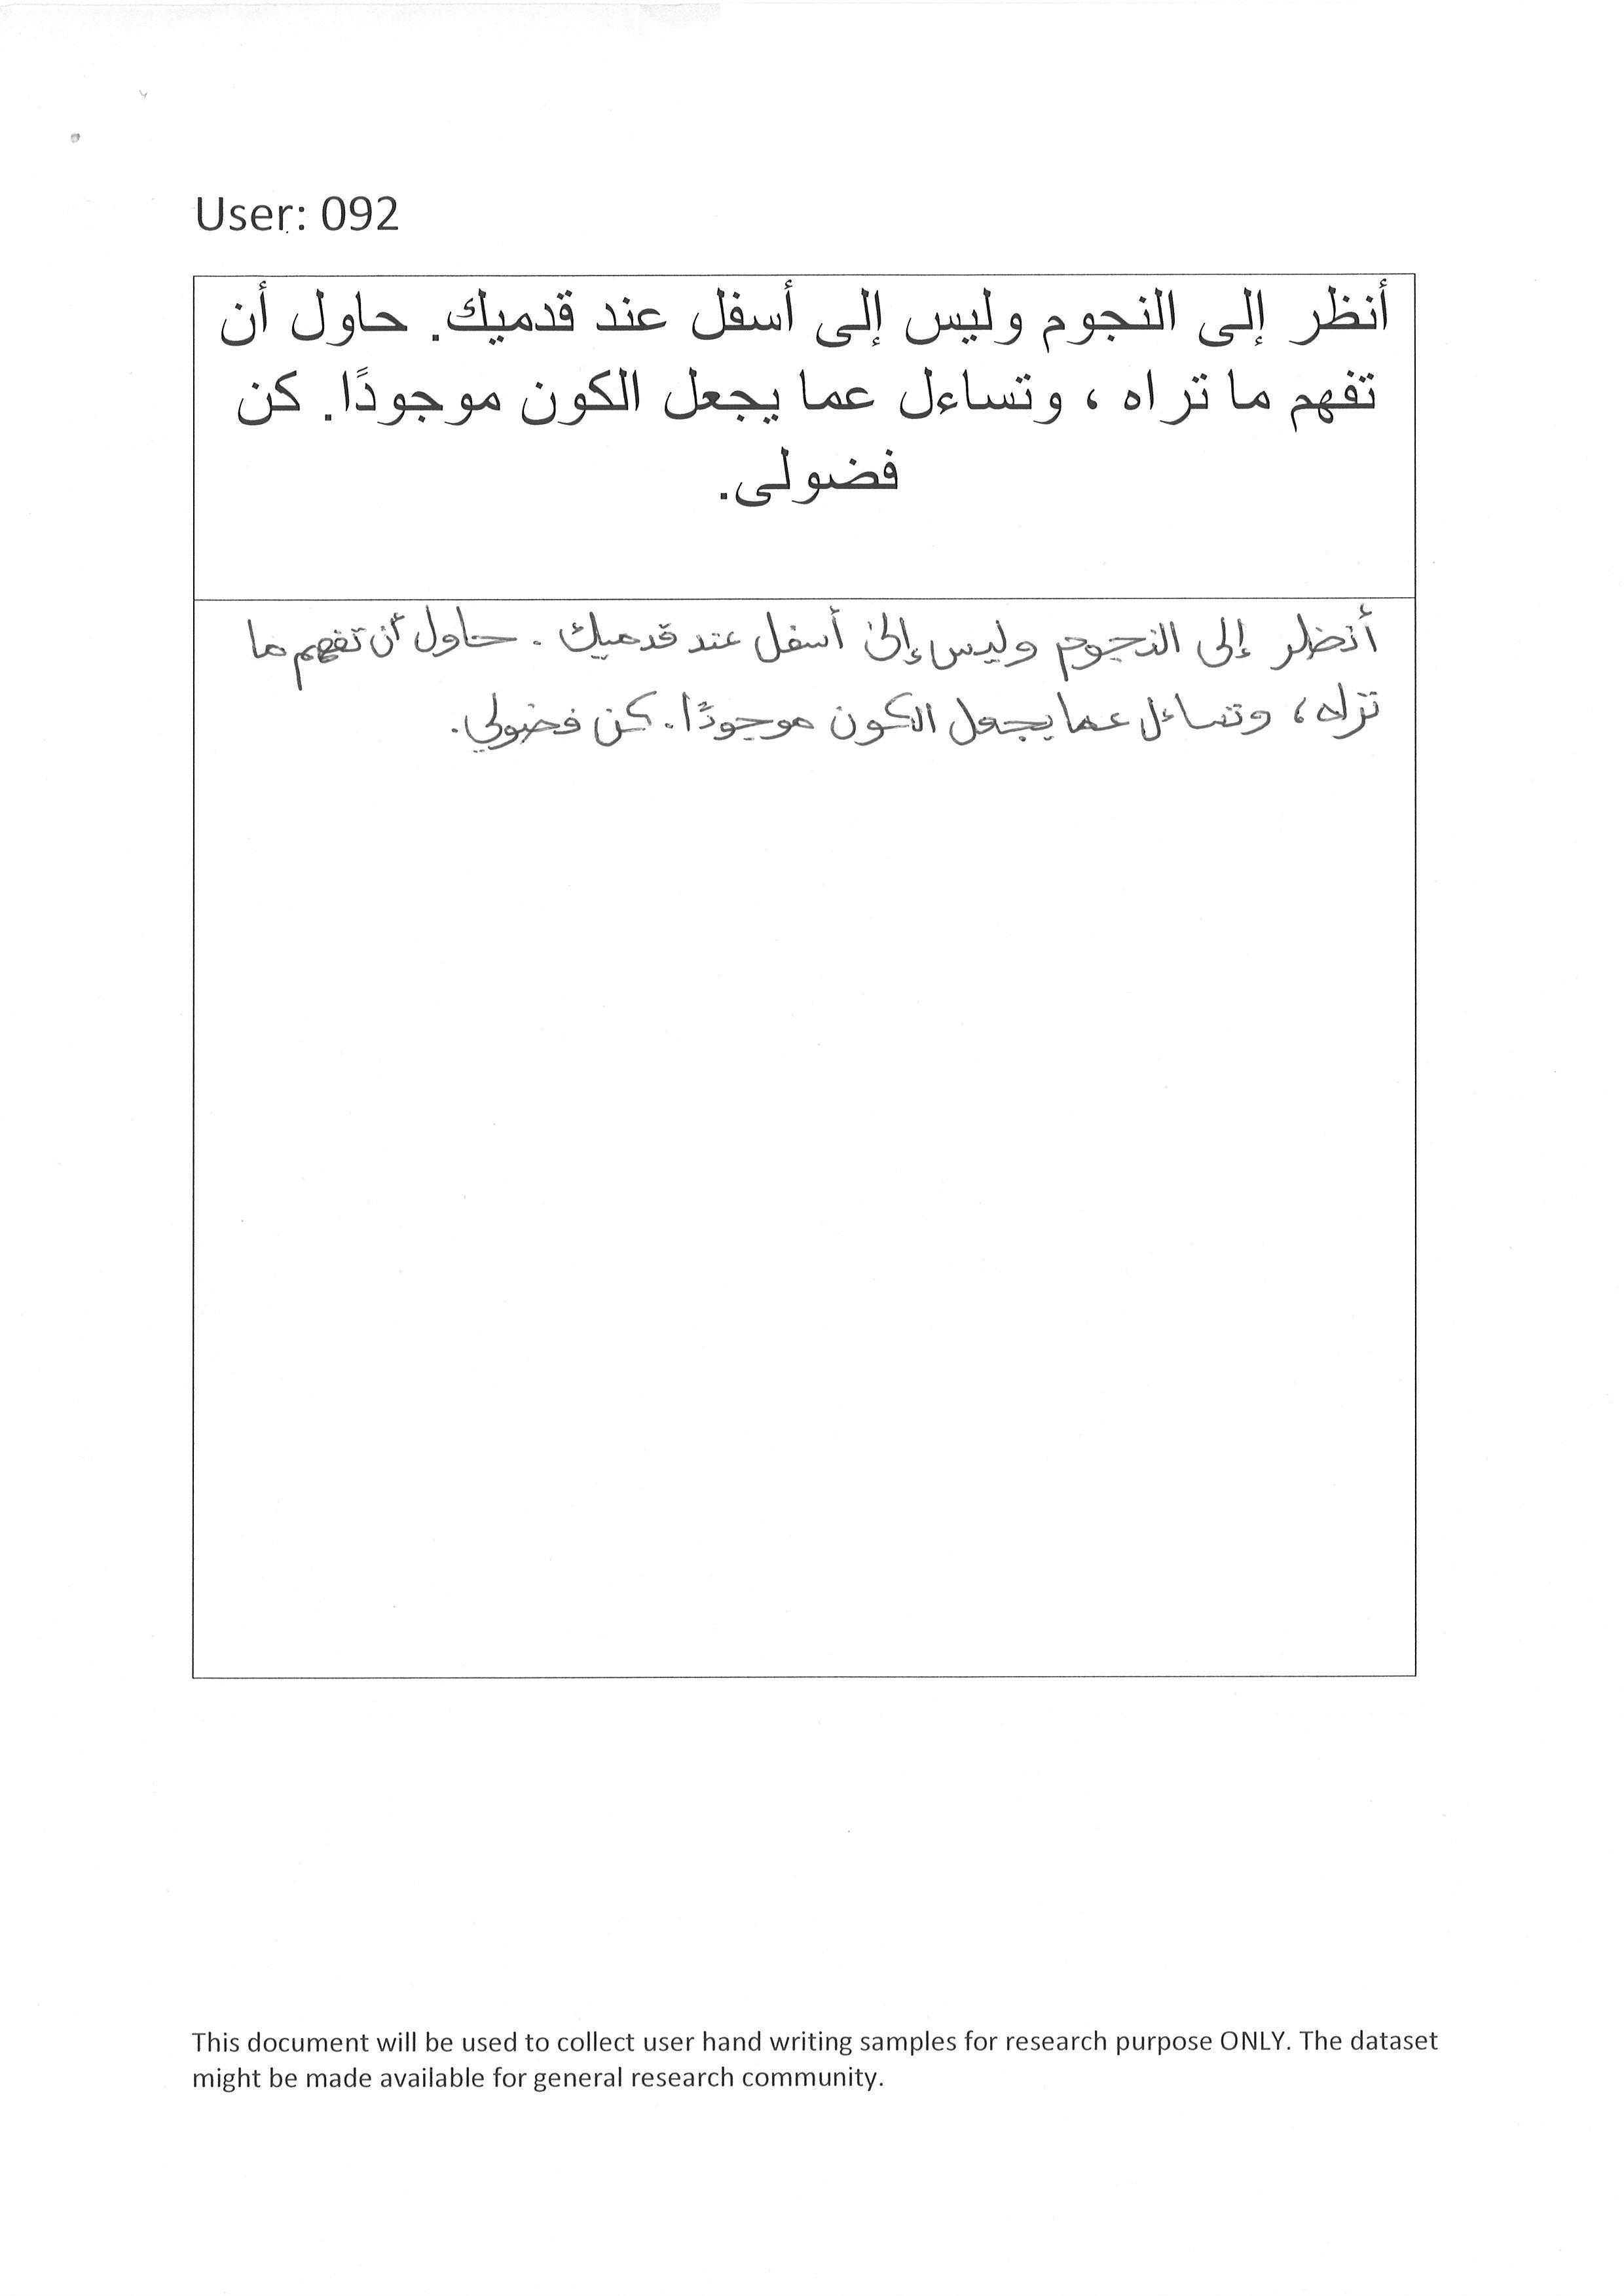 User: 092
أنظر إلى النجوم وليس إلى أسفل عند قدميك. حاول أن
تفهم ما تراه ، وتساءل عما يجعل الكون موجودًا. كن
فضولى.
أنظر إلى النجوم وليس إلى أسفل عند قدميك . حاول أن تفهم ما
تراه ، وتساءل عما يجعل الكون موجودًا . كن فضولي .
This document will be used to collect user hand writing samples for research purpose ONLY. The dataset
might be made available for general research community.